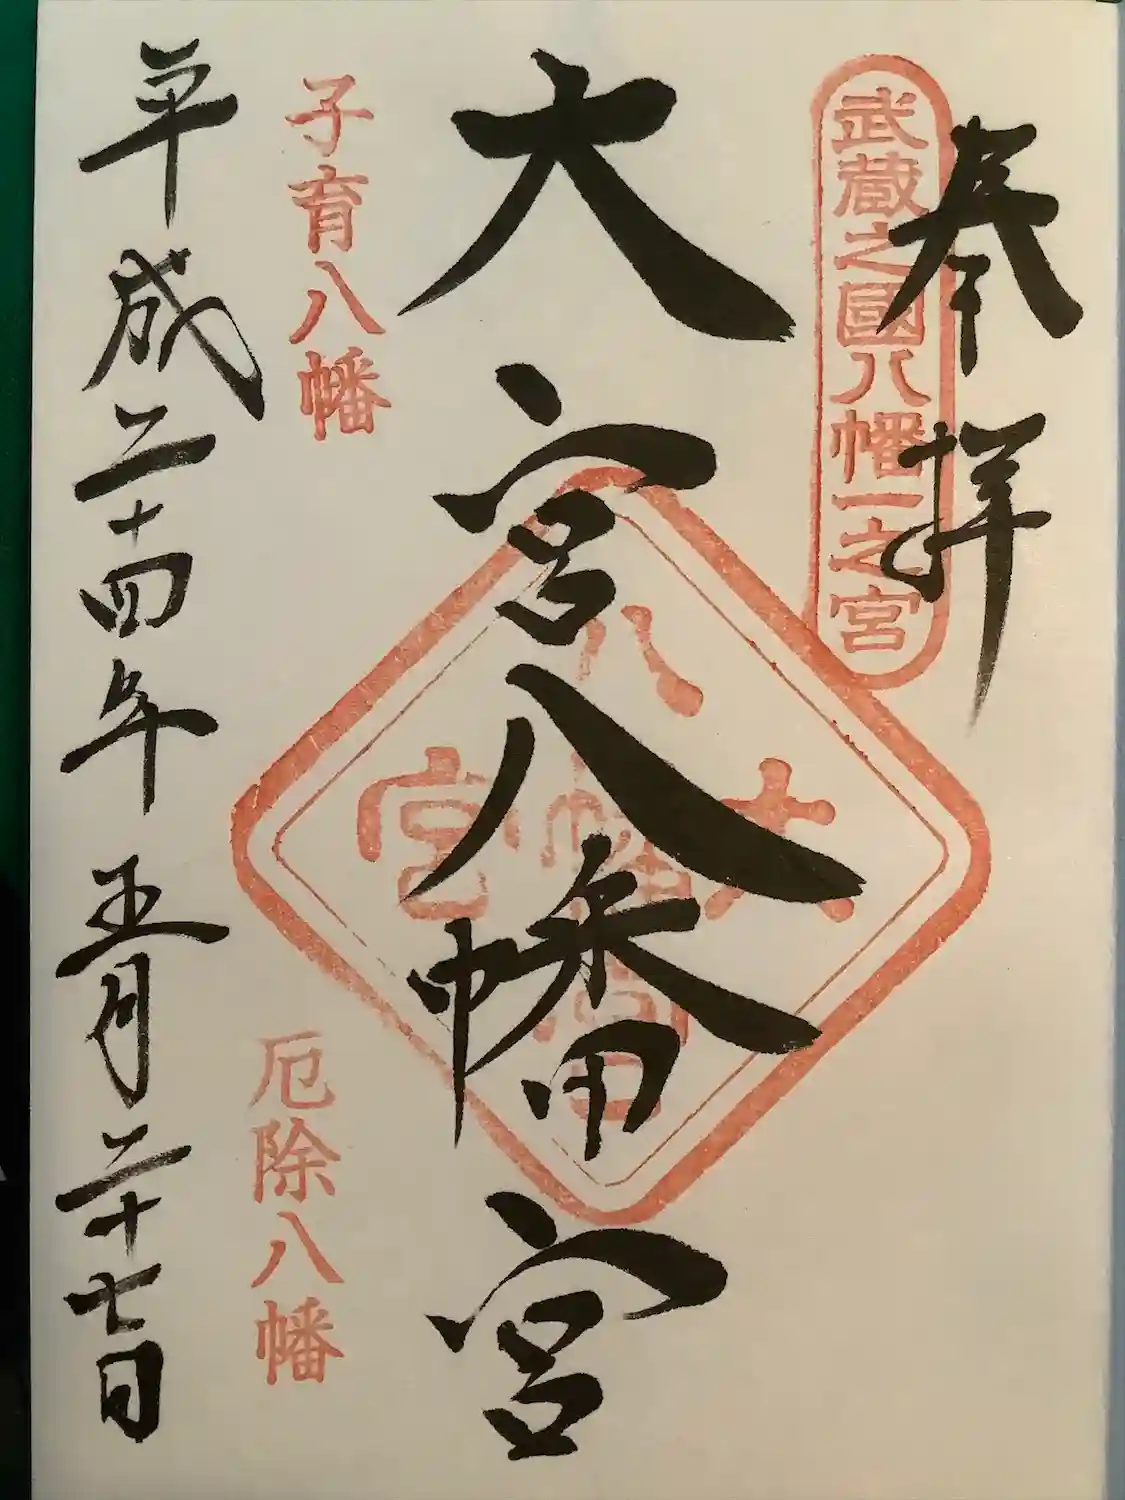 奉拝
武蔵之國八幡一之宮
大宮八幡宮
大宮八幡宮
子育八幡
厄除八幡
平成二十四年五月二十七日